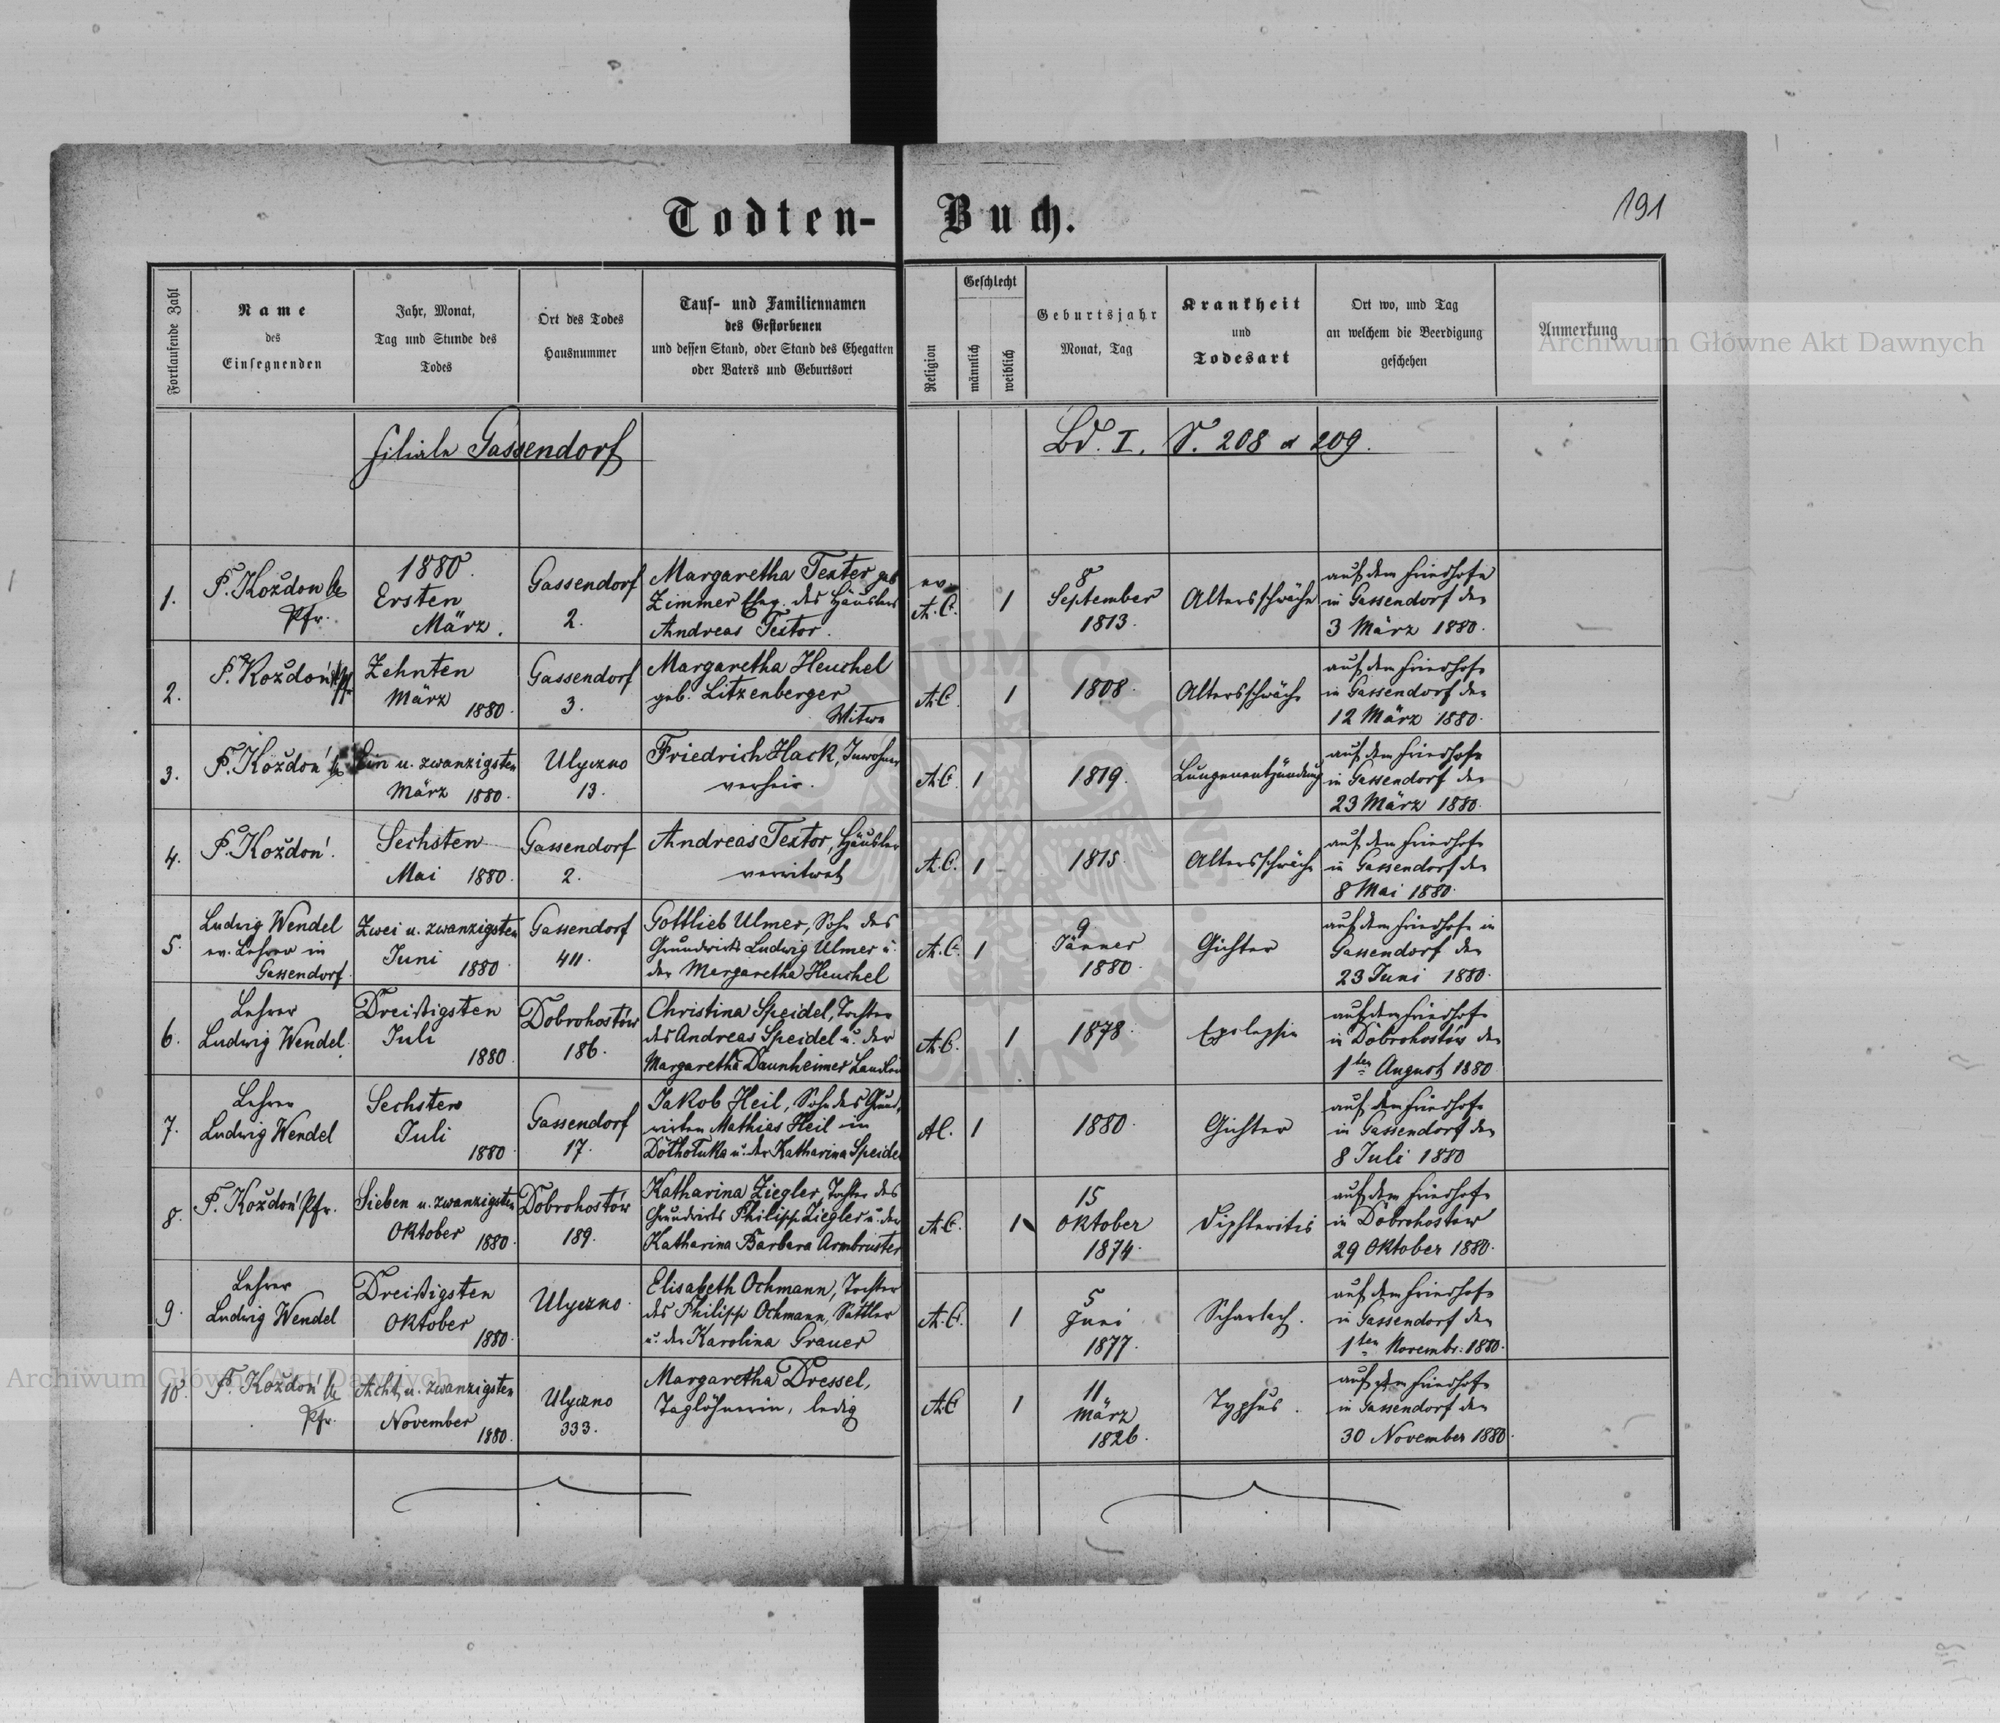 Todten-Buch.
191
Fortlaufende Zahl
Name
des
Einsegnenden
Jahr, Monat,
Tag und Stunde des
Todes
Ort des Todes
Hausnummer
Tauf- und Familiennamen
des Gestorbenen
und dessen Stand, oder Stand des Ehegatten
oder Vaters und Geburtsort
Religion
Geschlecht
männlich
weiblich
Geburtsjahr
Monat, Tag
Krankheit
und
Todesart
Ort wo, und Tag
an welchem die Beerdigung
geschehen
Anmerkung
Archiwum Główne Akt Dawnych
Filiale Gassendorf
Bd. I. S. 208 & 209.
1.
F. Kozdon
Pfr.
1880.
Ersten
März.
Gassendorf
2.
Margaretha Textor geb
Zimmer Eheg. des Häuslers
Andreas Textor.
ev.
A.C.
1
8
September
1813.
Altersschwäche
auf dem Friedhofe
in Gassendorf den
3 März 1880.
2.
F. Kozdoń Pfr
Zehnten
März
1880.
Gassendorf
3.
Margaretha Heuchel
geb. Litzenberger
Witwe
A.C.
1
1808.
Altersschwäche
auf dem Friedhofe
in Gassendorf den
12 März 1880.
3.
F. Kozdoń
Ein u. zwanzigsten
März 1880.
Ulyczno
13.
Friedrich Hack, Inwohner
verheir.
A.C.
1
1819.
Lungenentzündung
auf dem Friedhofe
in Gassendorf den
23 März 1880.
4.
F. Kozdoń.
Sechsten
Mai 1880.
Gassendorf
2.
Andreas Textor, Häusler
verwitwet
A.C.
1
1815.
Altersschwäche
auf dem Friedhofe
in Gassendorf den
8 Mai 1880.
5.
Ludwig Wendel
ev. Lehrer in
Gassendorf.
Zwei u. zwanzigsten
Juni
1880.
Gassendorf
Gottlieb Ulmer, Sohn des
Grundwirts Ludwig Ulmer u.
der Margaretha Heuchel
A.C.
1
9
Jänner
1880.
Gichter
auf dem Friedhofe in
Gassendorf den
23 Juni 1880.
6.
Lehrer
Ludwig Wendel.
Dreißigsten
Juli
1880.
Dobrohostów
186.
Christina Speidel, Tochter
des Andreas Speidel u. der
Margaretha Daunheimer
A.C.
1
1878.
Epilepsie
auf dem Friedhofe
in Dobrohostów den
1ten August 1880
7.
Lehrer
Ludwig Wendel
Sechsten
Juli
1880.
Gassendorf
17.
Jakob Heil, Sohn des Grund,
wirten Mathias Heil in
u. der Katharina Speidel
A.C.
1
1880.
Gichter
auf dem Friedhofe
in Gassendorf den
8 Juli 1880
8.
F. Kozdoń Pfr.
Sieben u. zwanzigsten
Oktober 1880.
Dobrohostów
189.
Katharina Ziegler, Tochter des
Grundwirts Philipp Ziegler u. der
Katharina Barbara Armbruster
A.C.
1
15
Oktober
1874.
Diphteritis
auf dem Friedhofe
in Dobrohostow
29 Oktober 1880.
9.
Lehrer
Ludwig Wendel
Dreißigsten
Oktober
1880.
Ulyczno.
Elisabeth Ochmann, Tochter
des Philipp Ochmann, Sattler
u. der Karolina Grauer
A.C.
1
5
Juni
1877.
Scharlach.
auf dem Friedhofe
in Gassendorf den
1ten Novembr. 1880.
10.
F. Kozdoń
Pfr.
Acht u. zwanzigsten
November
1880.
Ulyczno
333.
Margaretha Dressel,
Taglöhnerin, ledig
A.C.
1
11
März
1826.
Typhus.
auf dem Friedhofe
in Gassendorf den
30 November 1880.
Archiwum Główne Akt Dawnych